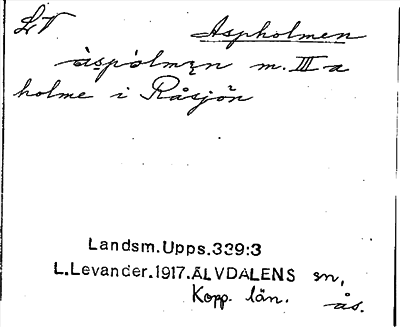 LT Aspholmen
àspòlmęn m. III a
holme i Råsjön
Landsm.Upps.339:3
L.Levander.1917.ÄLVDALENS sn,
Kopp. län. ås.